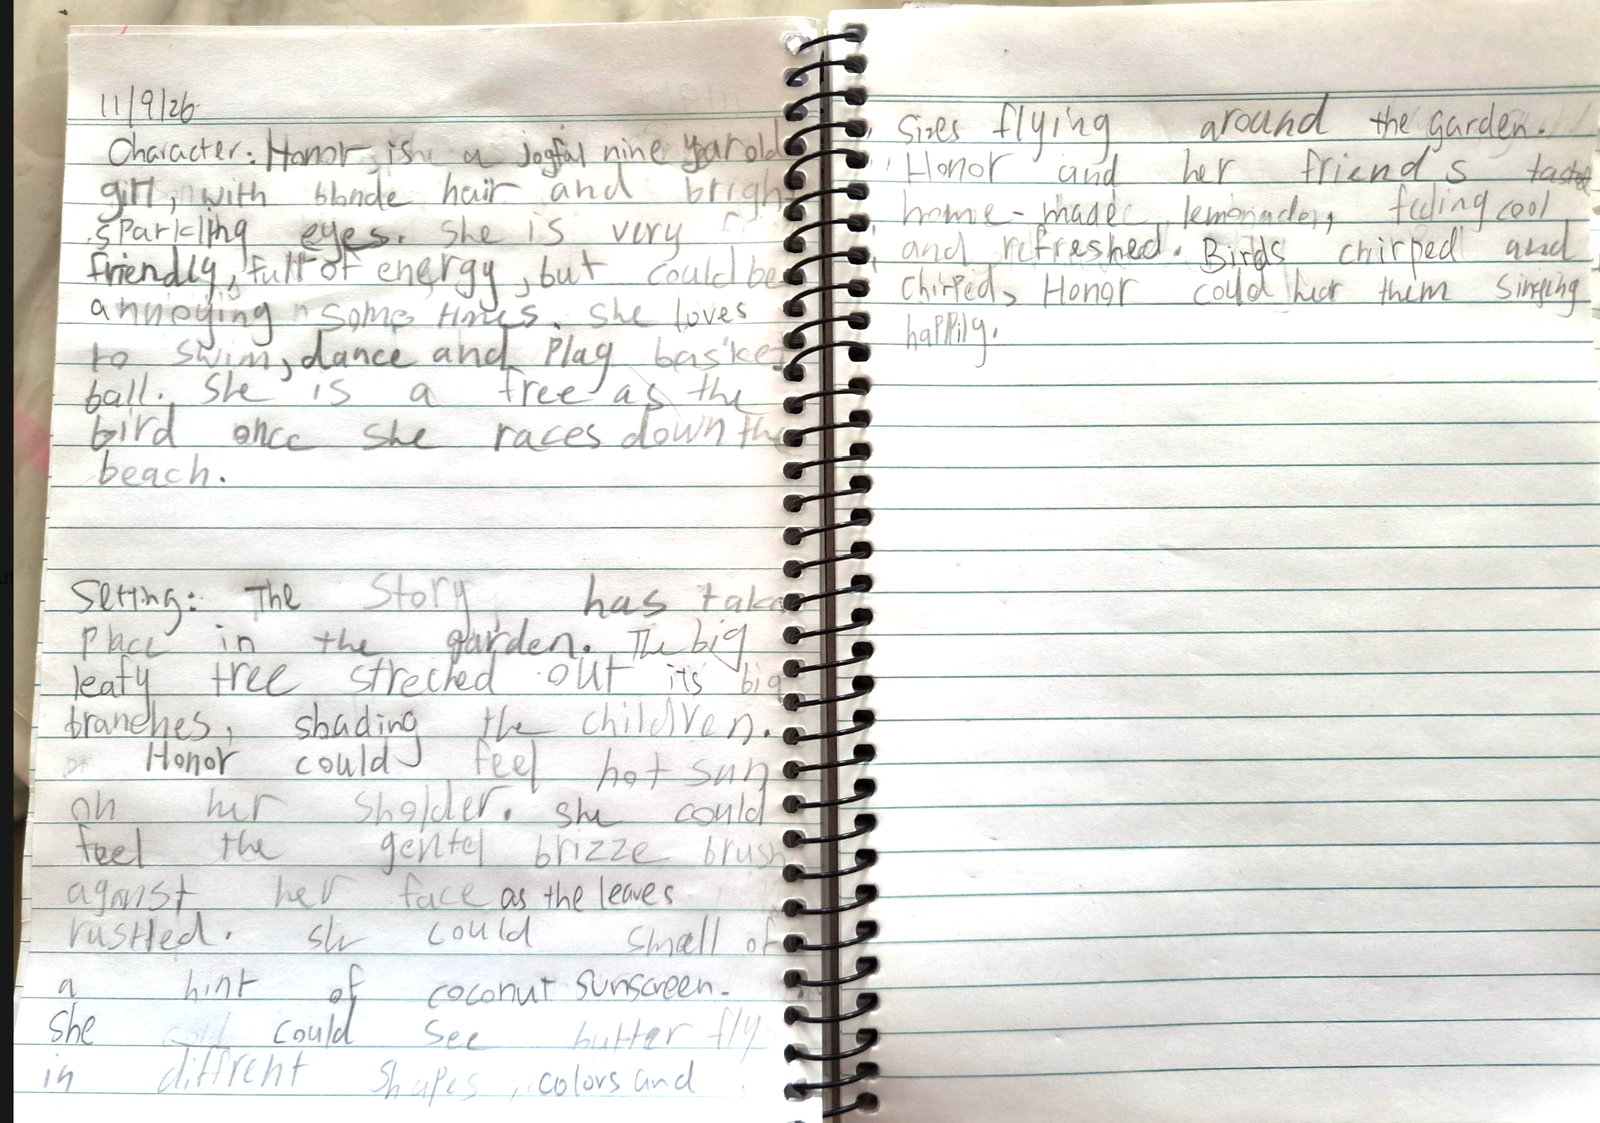 11/9/26
Character: Honor, is a joyful nine yarold
girl, with blonde hair and brigh
sparkling eyes. She is very
friendly, full of energy, but could be
annoying some times. She loves
to swim, dance and play basket
ball. She is a free as the
bird once she races down the
beach.
Setting: The Story has take
place in the garden. The big
leafy tree streched out its big
branches, shading the children.
Honor could feel hot sun
on her sholder. She could
feel the gentel brizze brush
aganst her face as the leaves
rustled. She could smell of
a hint of coconut sunscreen.
She could see butter flys
in diffrent shapes, colors and
sizes flying around the garden.
Honor and her friends taste
home-made lemonade, feeling cool
and refreshed. Birds chirped and
chirped, Honor could hear them singing
happily.